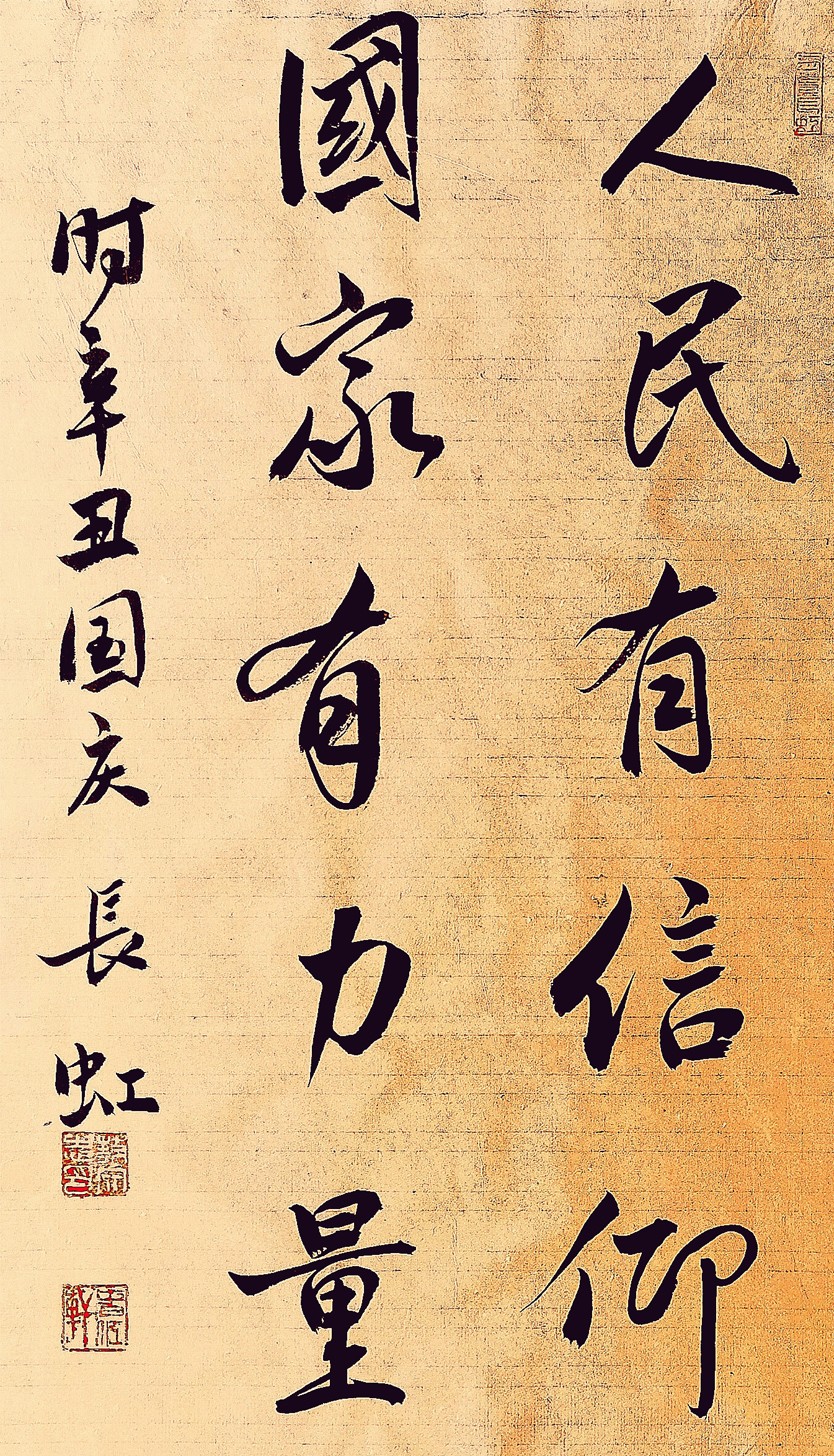 人民有信仰
國家有力量
时辛丑国庆 長虹